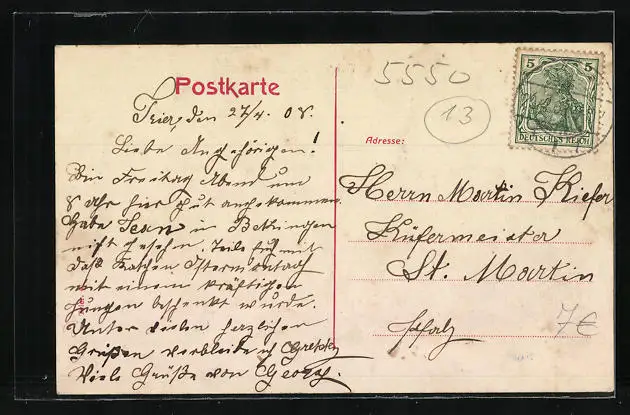 Postkarte
Trier, den 27/4. 08.
Liebe Angehörigen!
Bin Freitag Abend um
8 Uhr hier gut angekommen.
Habe Jean in
nicht gesehen. Teile Euch mit
daß Ostermontag
mit einem kräftigen
Jungen beschenkt wurde.
Unter vielen herzlichen
Grüßen verbleibe ich
Viele Grüße von Georg.
5550
13
5
DEUTSCHES REICH
Adresse:
Herrn Martin Kiefer
Küfermeister
St. Martin
Pfalz
7€